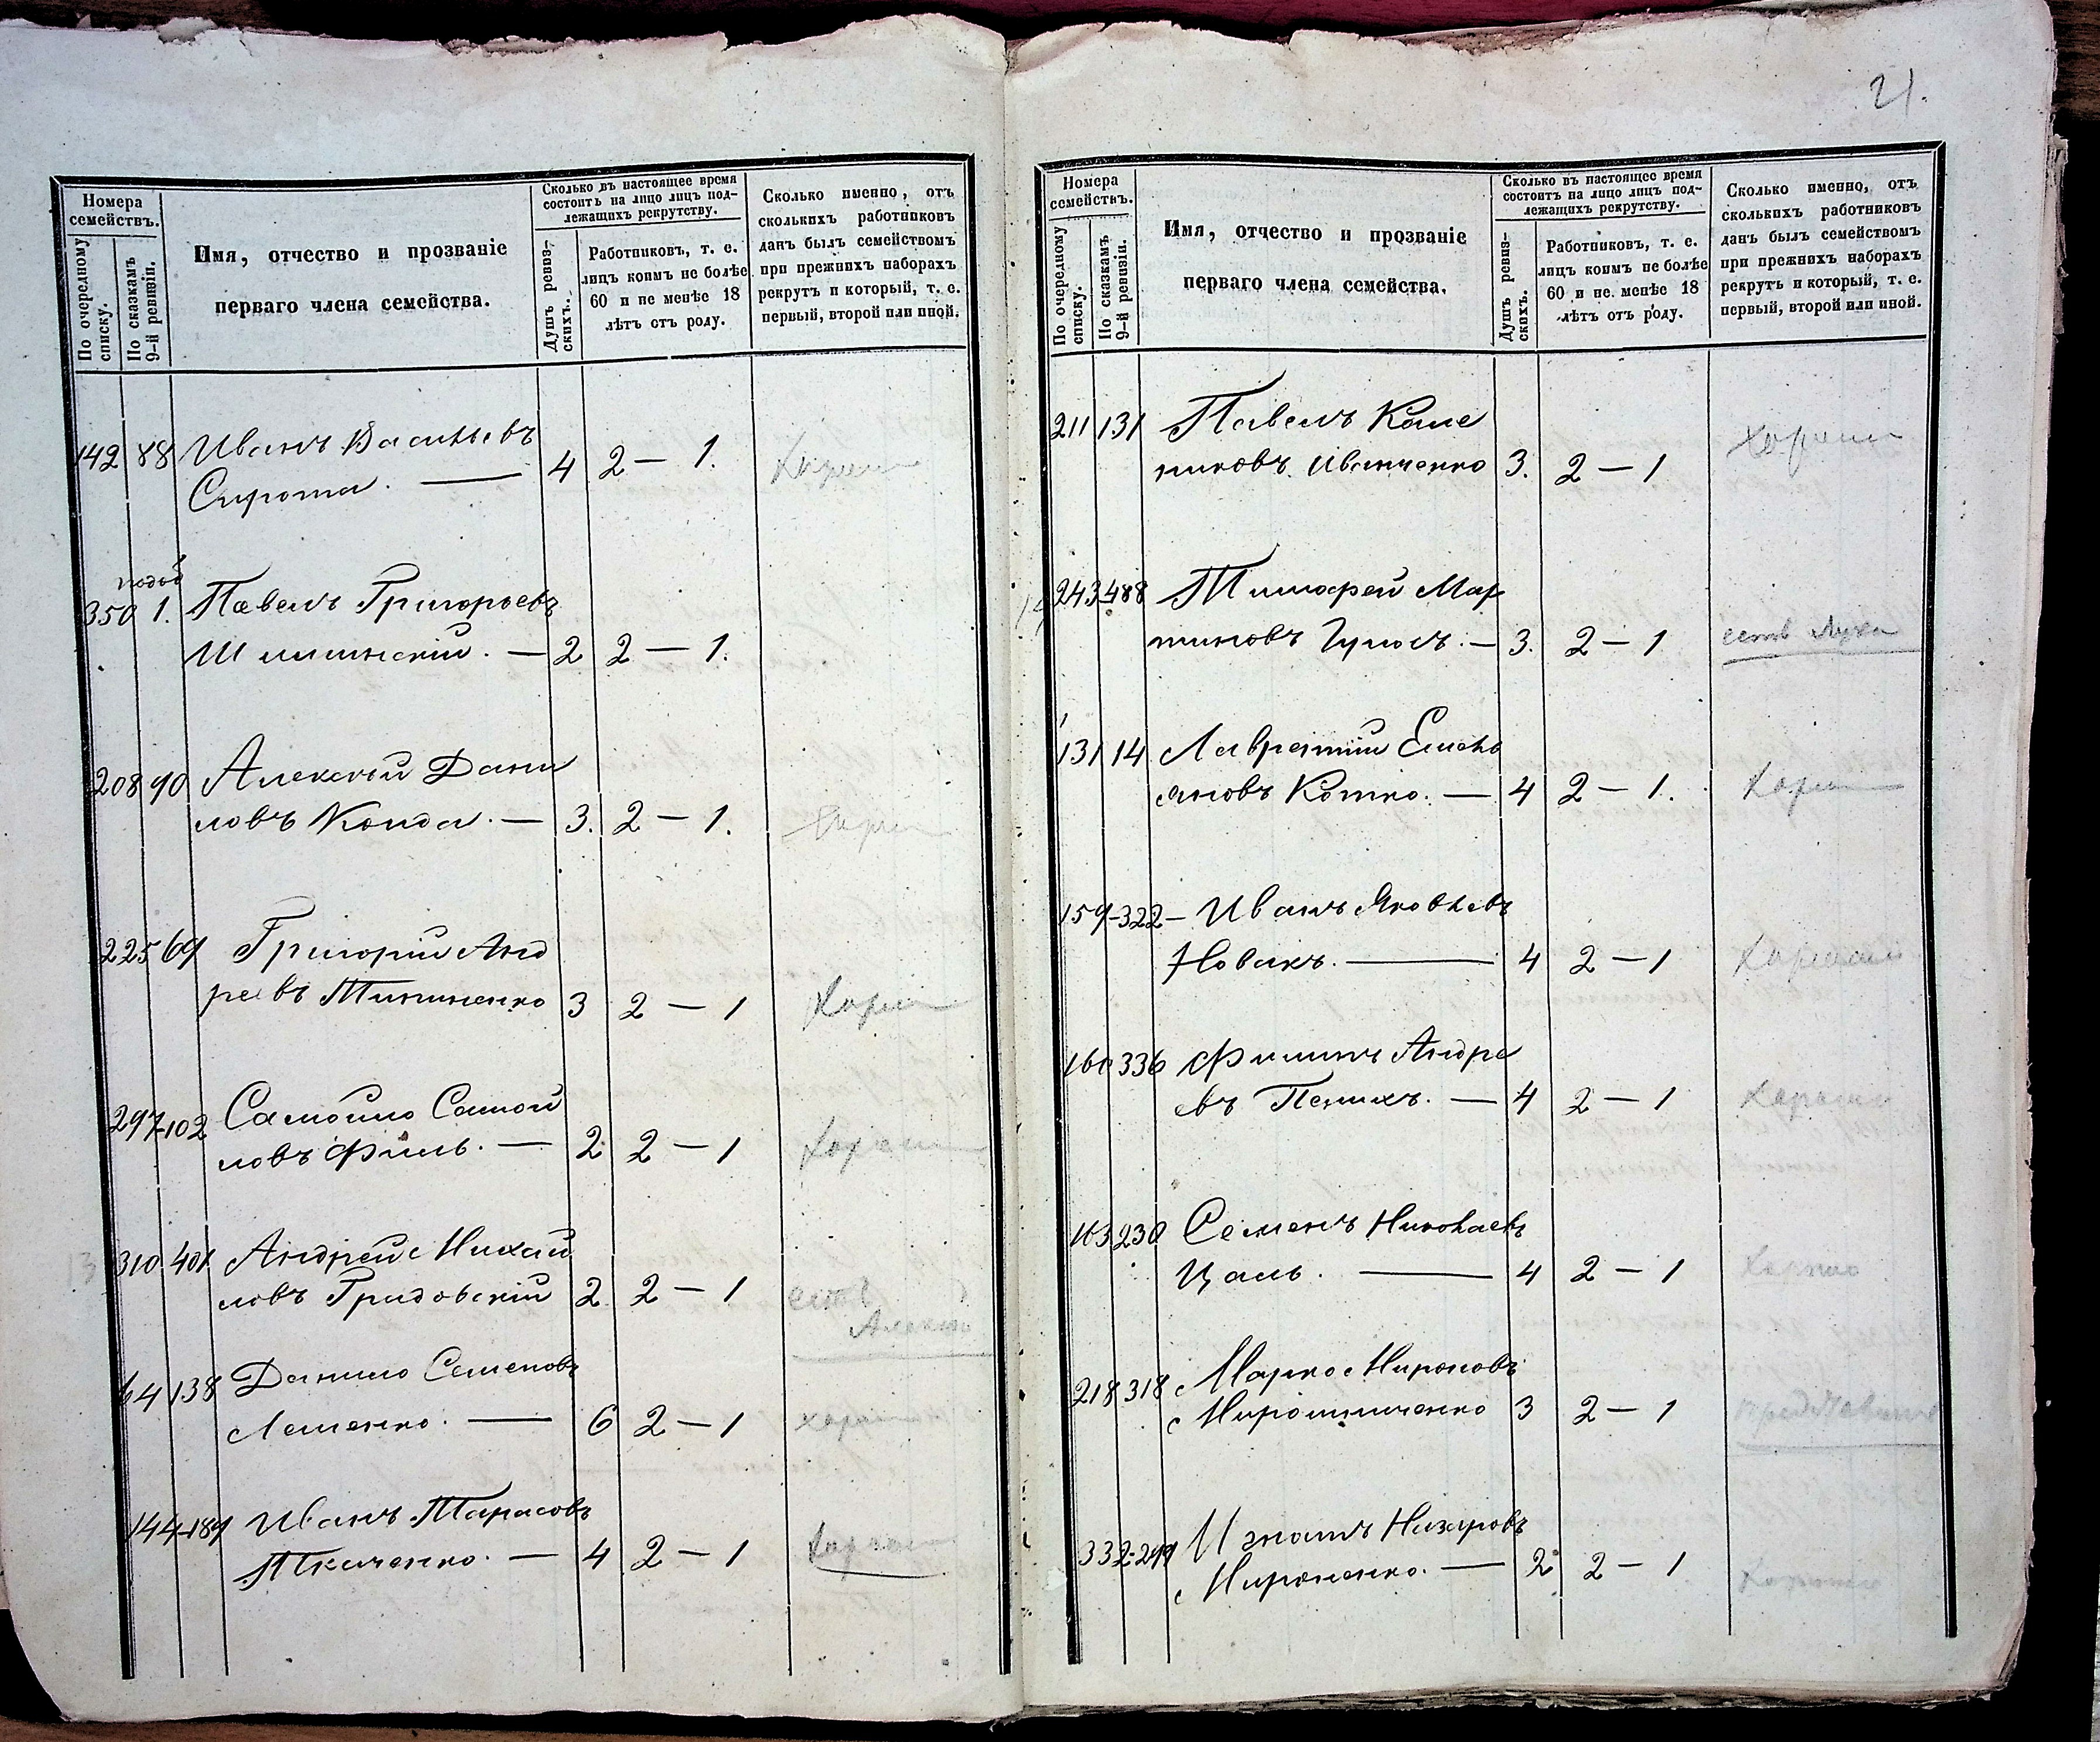 Номера семействъ.
По очередному списку.
По сказкамъ 9-й ревизіи.
Имя, отчество и прозваніе
перваго члена семейства.
Сколько въ настоящее время
состоитъ на лицо лицъ под-
лежащихъ рекрутству.
Душъ ревиз-
скихъ.
Работниковъ, т. е.
лицъ коимъ не болѣе
60 и не менѣе 18
лѣтъ отъ роду.
Сколько именно, отъ
сколькихъ работниковъ
данъ былъ семействомъ
при прежнихъ наборахъ
рекрутъ и который, т. е.
первый, второй или иной.
142 88 Иванъ Васильевъ
Сирота. — 4 2 — 1.
350 1. Павелъ Григорьевъ
2 2 — 1.
208 90 Алексѣй Дани
ловъ Конда. — 3. 2 — 1.
225 69 Григорій Анд
реевъ 3 2 — 1
297-102 Самойло Самой
ловъ Филь. — 2 2 — 1
310 401 Андрей Михай
ловъ Гридовскій 2 2 — 1
64 138 Данило Семеновъ
Лешенко. — 6 2 — 1
144-189 Иванъ Тарасовъ
Ткаченко. — 4 2 — 1
21.
Номера семействъ.
По очередному списку.
По сказкамъ 9-й ревизіи.
Имя, отчество и прозваніе
перваго члена семейства.
Сколько въ настоящее время
состоитъ на лицо лицъ под-
лежащихъ рекрутству.
Душъ ревиз-
скихъ.
Работниковъ, т. е.
лицъ коимъ не болѣе
60 и не менѣе 18
лѣтъ отъ роду.
Сколько именно, отъ
сколькихъ работниковъ
данъ былъ семействомъ
при прежнихъ наборахъ
рекрутъ и который, т. е.
первый, второй или иной.
211 131 Павелъ
Иванченко 3. 2 — 1
243-488 Тимофей Мар
тиновъ — 3. 2 — 1
131 14 Лаврентій Емель
яновъ Котко. — 4 2 — 1.
159-322 — Иванъ Яковлевъ
Новакъ. — 4 2 — 1
160 336 Филипъ Андре
евъ — 4 2 — 1
163 230 Семенъ Николаевъ
Цаль. — 4 2 — 1
218 318 Марко Мироновъ
Мирошниченко 3 2 — 1
332-299 Игнатъ Назаровъ
Мироненко. — 2 2 — 1